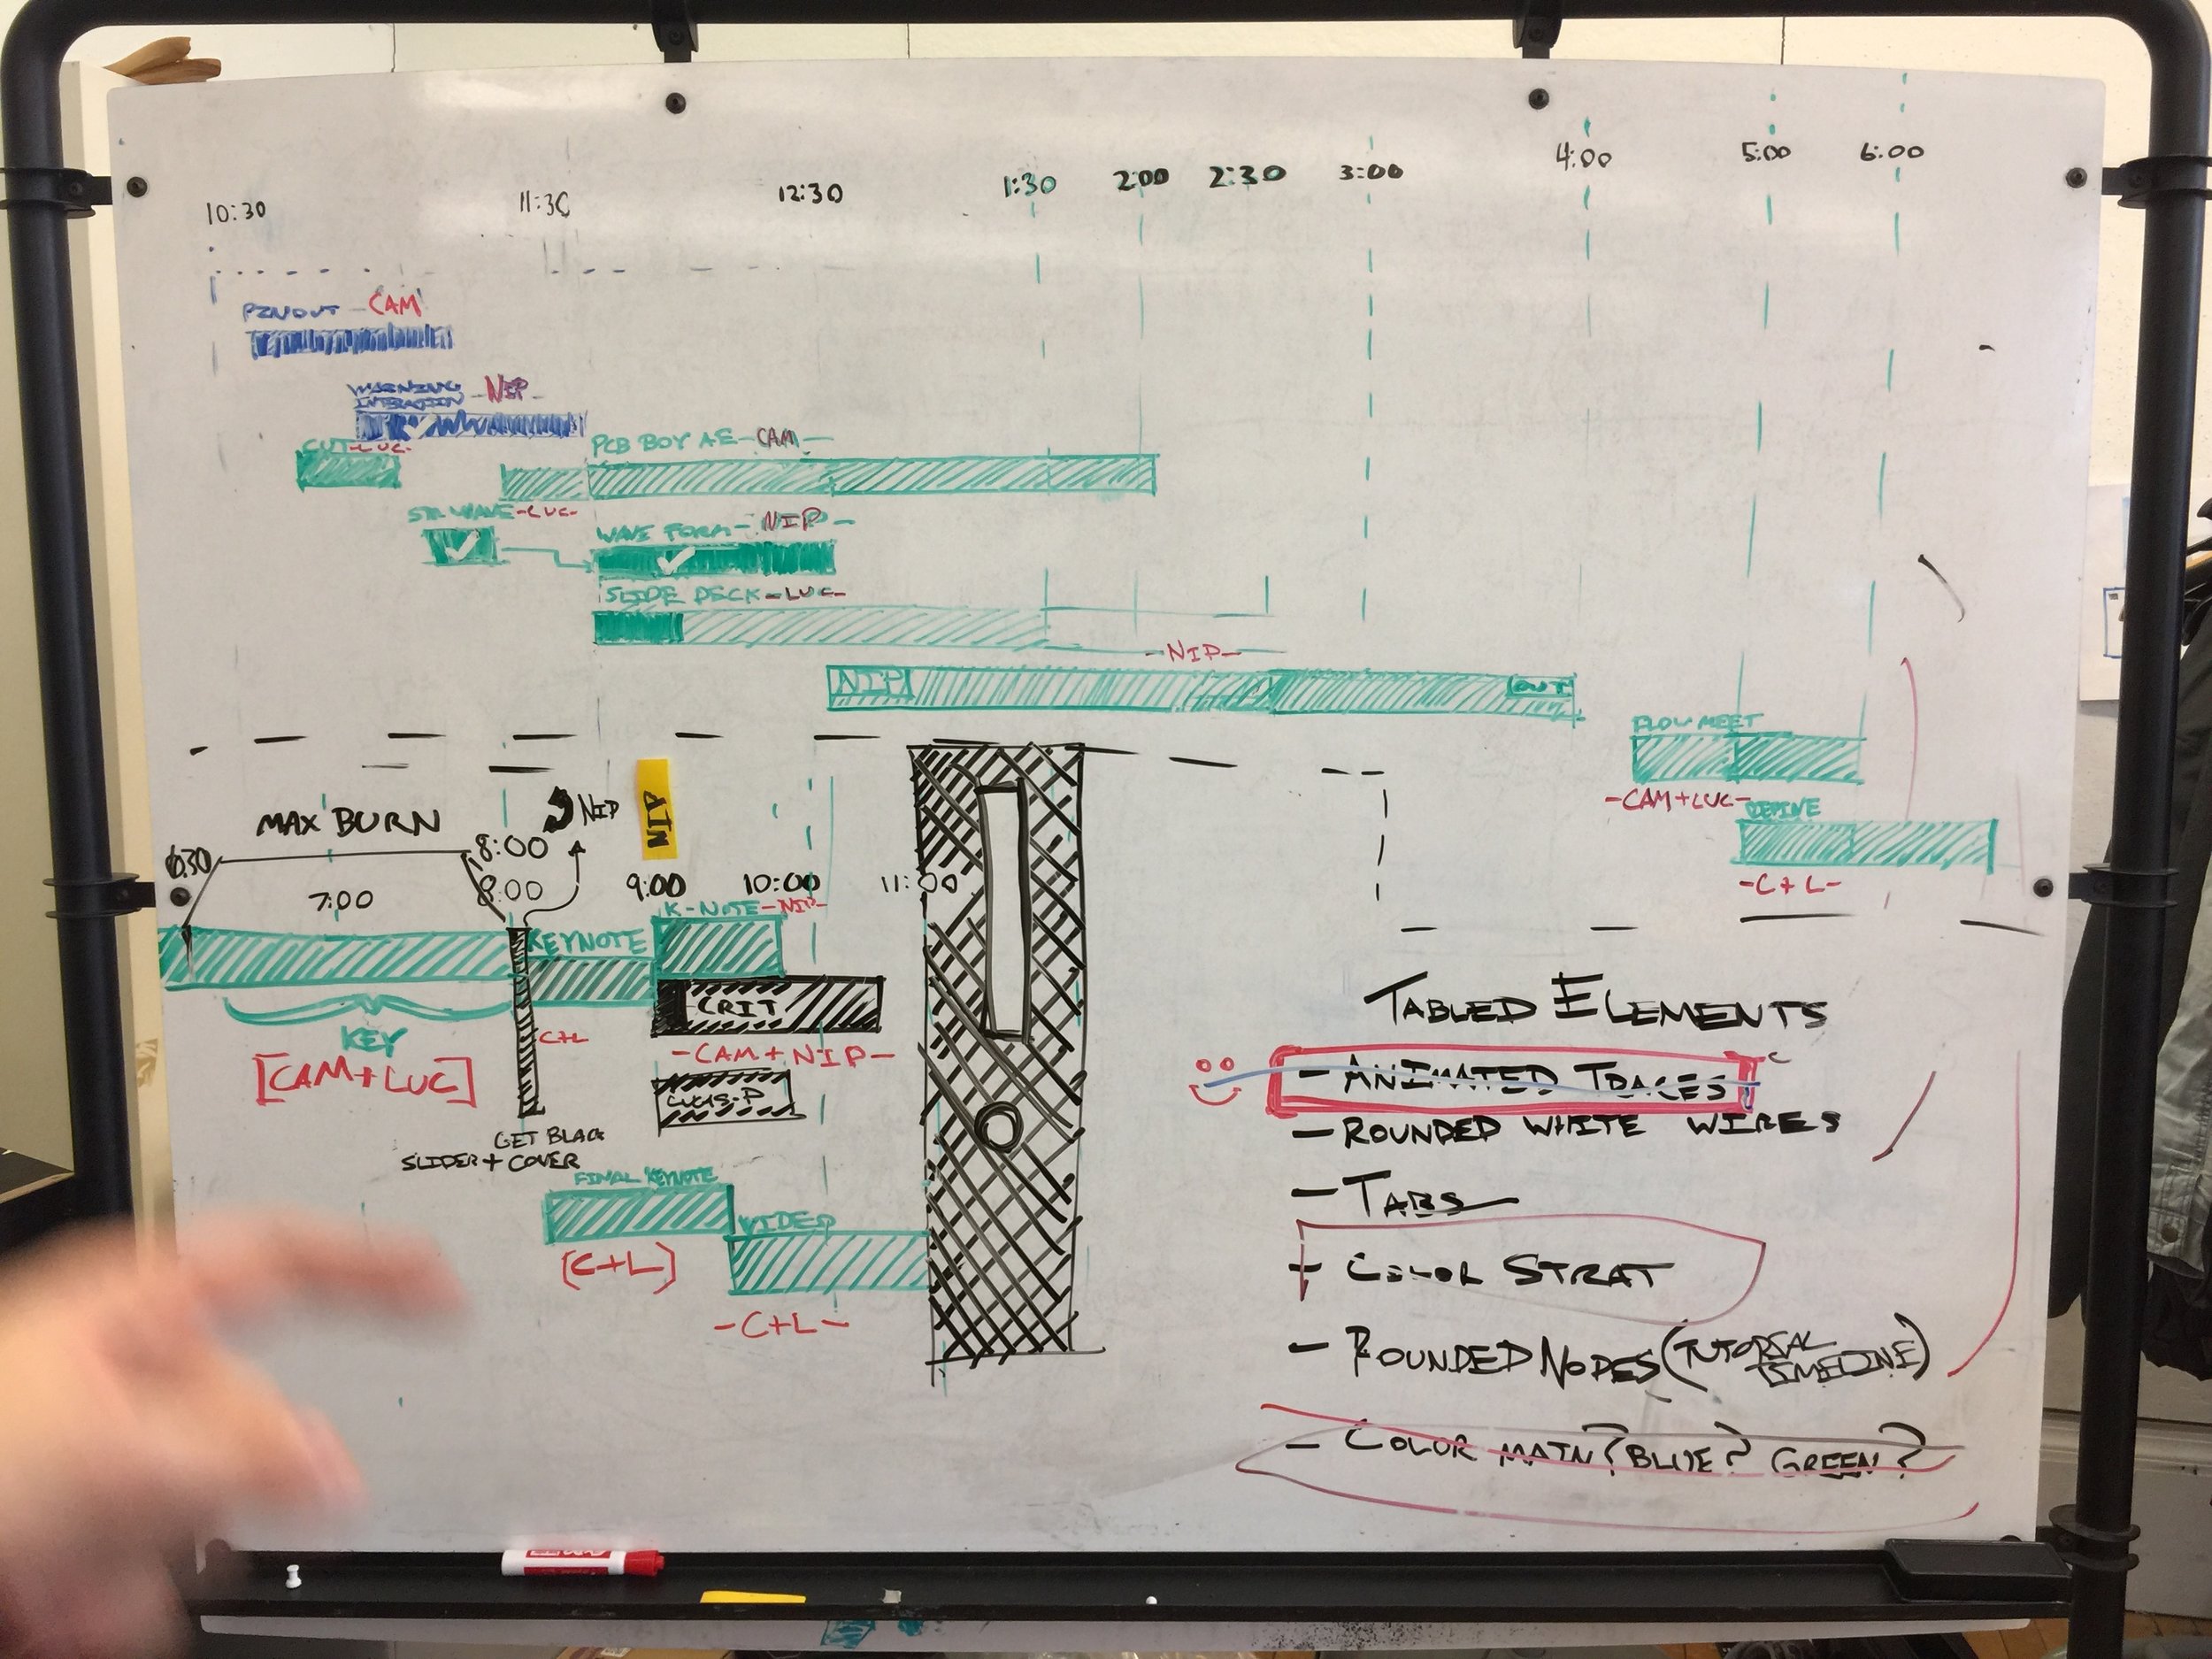 10:30 11:30 12:30 1:30 2:00 2:30 3:00 4:00 5:00 6:00
PINOUT - CAM
WARNING - NIP -
CUT - LUC -
PCB BOY A.E - CAM -
WAVE - LUC -
WAVE FORM - NIP -
SLIDE DECK - LUC -
- NIP -
NIP OUT
FLOW MEET
- CAM + LUC -
DEFINE
- C + L -
MAX BURN
NIP
NIP
6:30 8:00
7:00 8:00 9:00 10:00 11:00
K-NOTE - NIP -
KEYNOTE
CRIT
KEY
C+L
- CAM + NIP -
[CAM + LUC]
LUCAS-P
GET BLACK
SLIDER + COVER
FINAL KEYNOTE
VIDEO
[C+L]
- C+L -
TABLED ELEMENTS
- ANIMATED TRACES
- ROUNDED WHITE WIRES
- TABS
- COLOR STRAT
- ROUNDED NODES (TUTORIAL
TIMELINE)
- COLOR MAIN? BLUE? GREEN?